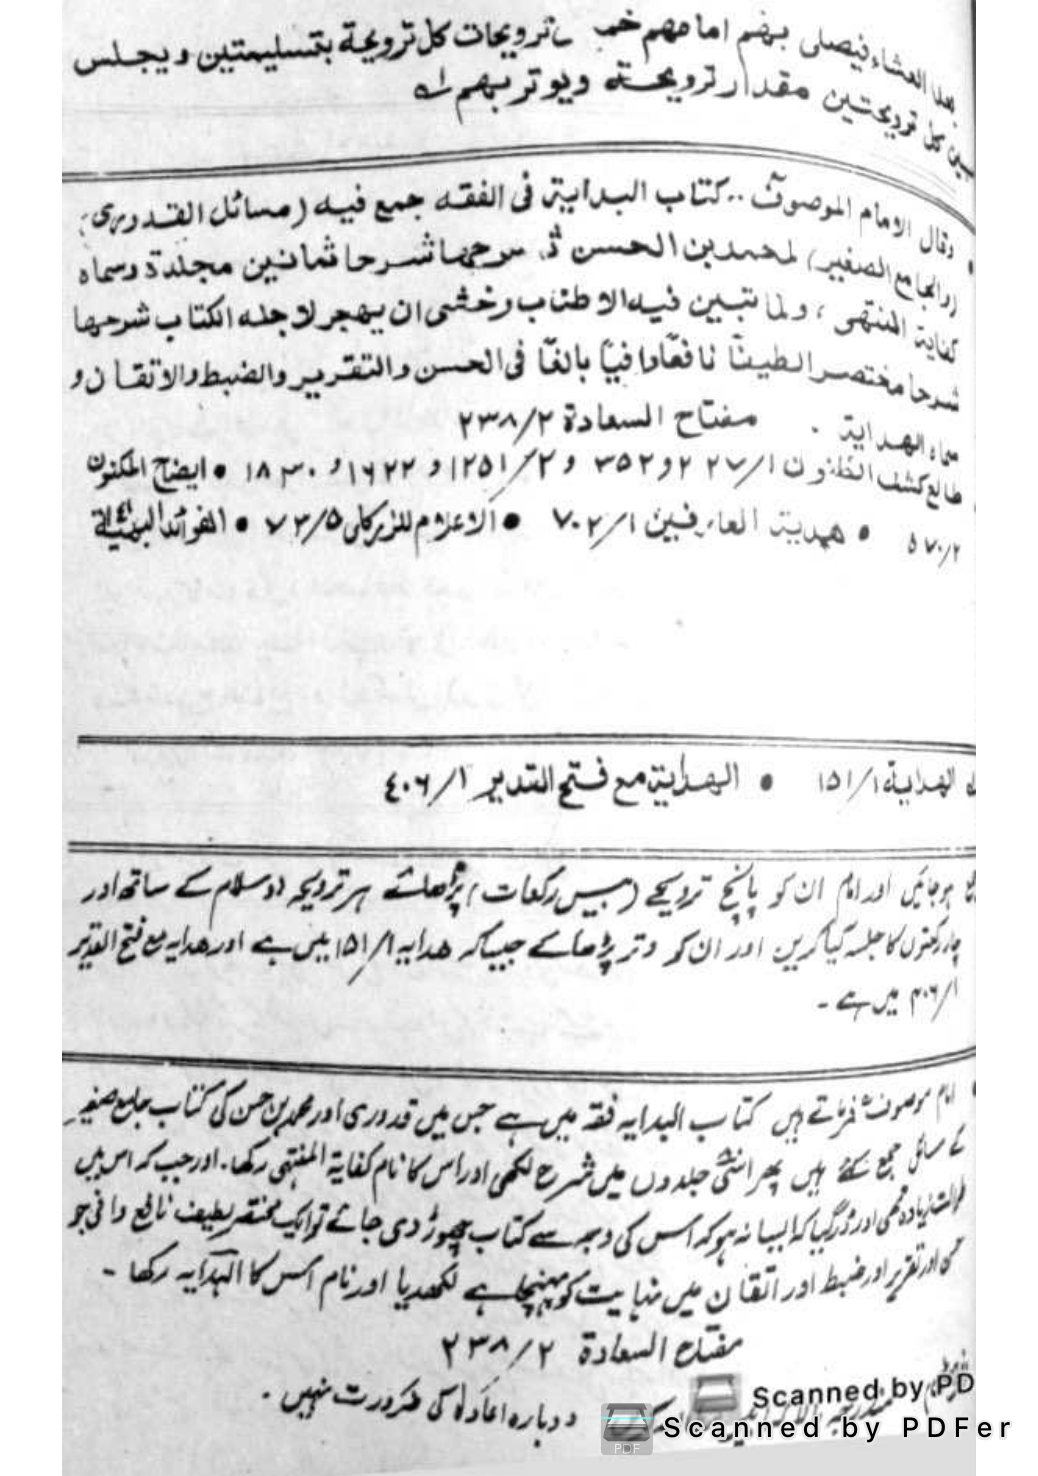 بعد العشاء فيصلى بهم امامهم خمس ترويحات كل ترويحة بتسليمتين ويجلس
بين كل ترويحتين مقدار ترويحته ويوتر بهم
وقال الامام الموصوف .. كتاب البداية فى الفقه جمع فيه (مسائل القدورى)
(والجامع الصغير) لمحمد بن الحسن ثم شرحها شرحا ثمانين مجلدة وسماه
كفاية المنتهى ، ولما تبين فيه الاطناب وخشى ان يهجر لاجله الكتاب شرحها
شرحا مختصرا لطيفا نافعا وافيا بالغا فى الحسن والتقرير والضبط والاتقان و
سماه الهداية . مفتاح السعادة ٢/٢٣٨
طالع كشف الظنون ١/٢٢٧ و٣٥٢ و٢/١٢٥١ و ١٦٢٢ و • ايضاح المكنون
٢/٥٧٠ • هدية العارفين ١/٧٠٢ • الاعلام للزركلى ٥/٧٣ • الفوائد البهية
الهداية ١/١٥١ • الهداية مع فتح القدير ١/٤٠٦
ہوجائیں اور امام ان کو پانچ ترویحے (بیس رکعات) پڑھائے ہر ترویحہ دو سلام کے ساتھ اور
چار رکعتوں کا جلسہ کیا کریں اور ان کو وتر پڑھائے جیسا کہ ھدایہ ١/١٥١ میں ہے اور ھدایہ مع فتح القدیر
١/۴۰۶ میں ہے ۔
امام موصوف فرماتے ہیں کتاب البدایہ فقہ میں ہے جس میں قدوری اور محمد بن حسن کی کتاب جامع صغیر
کے مسائل جمع کئے ہیں پھر اسّی جلدوں میں شرح لکھی اور اس کا نام کفایۃ المنتہی رکھا، اور جب کہ اس میں
طوالت زیادہ تھی اور ڈر گیا کہ ایسا نہ ہو کہ اس کی وجہ سے کتاب چھوڑ دی جائے تو ایک مختصر لطیف نافع وافی جو
اور تقریر اور ضبط اور اتقان میں نہایت کو پہنچا ہے لکھدیا اور نام اس کا الہدایہ رکھا ۔
مفتاح السعادة ٢/٢٣٨
دوبارہ اعادہ کی ضرورت نہیں ۔
Scanned by PD
Scanned by PDFer
PDF